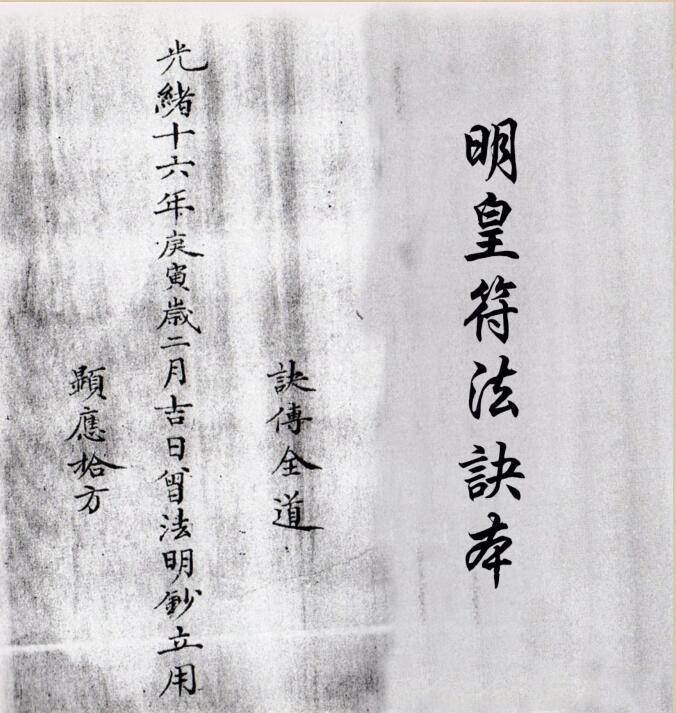 明皇符法訣本
訣傳全道
光緒十六年庚寅歲二月吉日曾法明鈔立用
顯應拾方